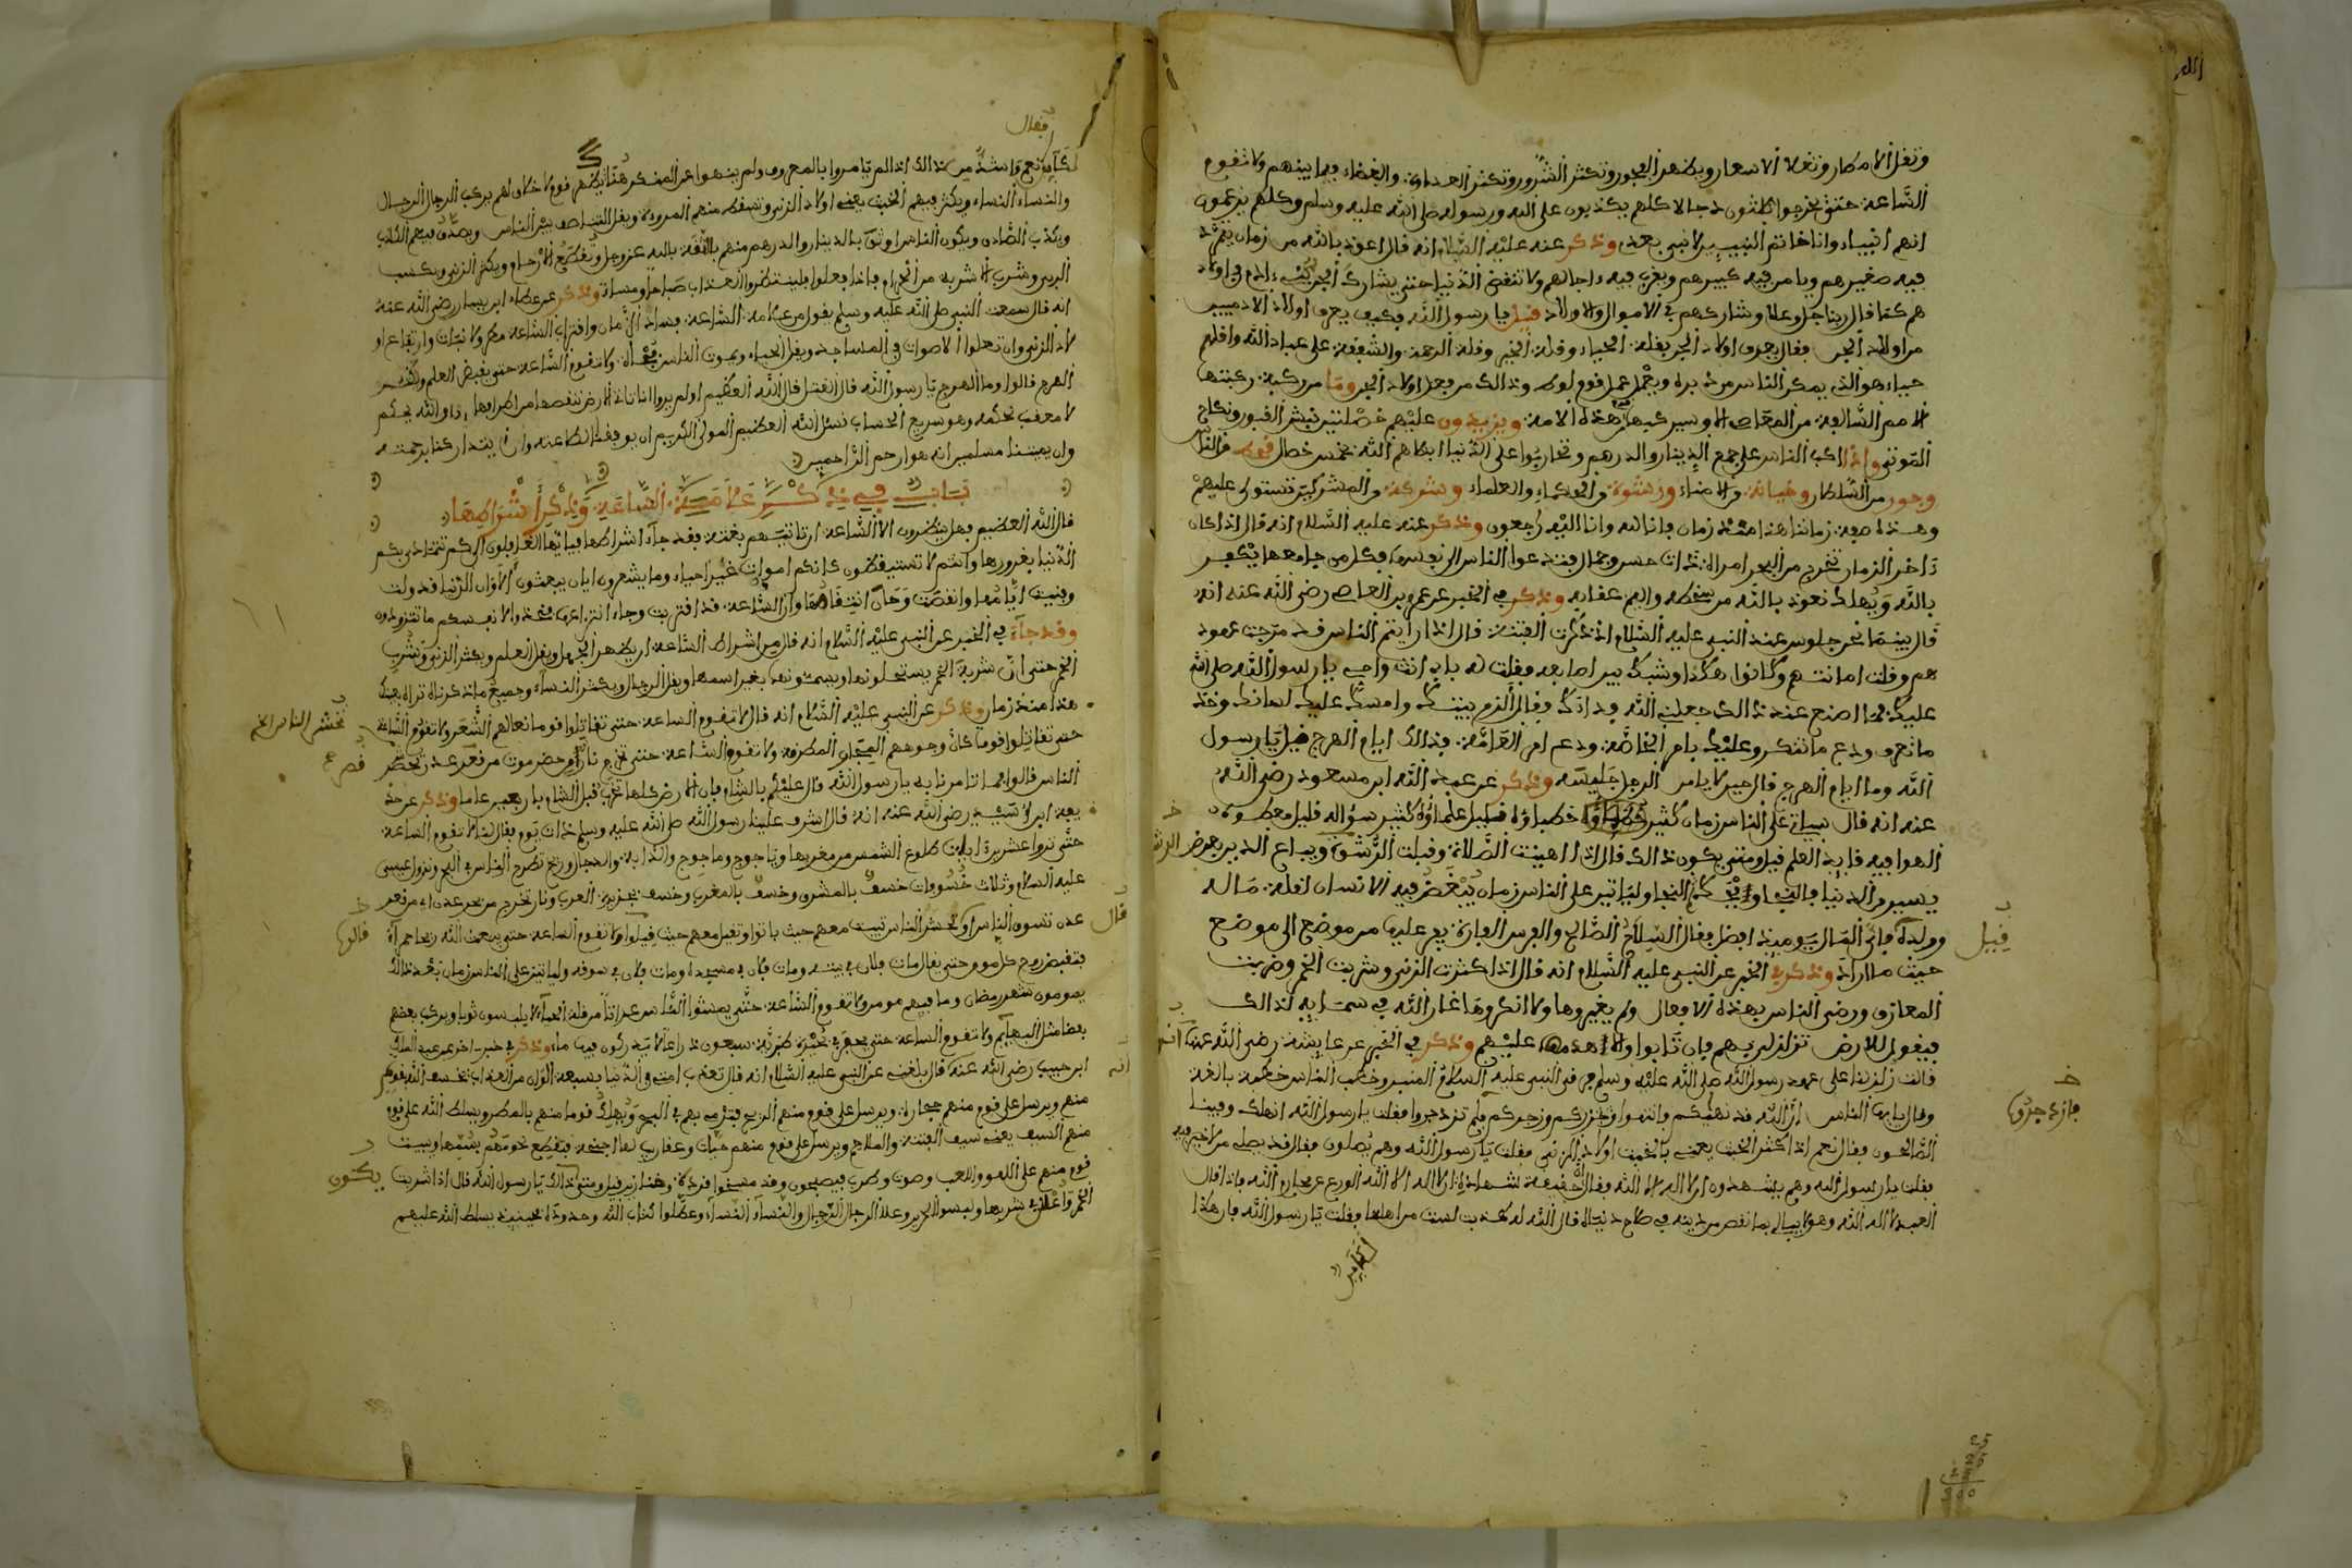 وتقل الامطار وتغلا الاسعار ويظهر الفجور وتكثر الشرور وتكثر العداوة والبغضاء فيما بينهم ولا تقوم
الساعة حتى يخرجوا ثلثون دجالا كلهم يكذبون على الله ورسوله صلى الله عليه وسلم وكلهم يزعمون
انهم انبياء وانا خاتم النبيين لا نبي بعدي وذكر عنه عليه السلام انه قال اعوذ بالله من زمان
فيه صغيرهم ويامر فيه كبيرهم ويقرب فيه ءاجالهم ولا تنقضي الدنيا حتى يشارك الجن بني ءادم في اولاد
هم كما قال ربنا جل وعلا وشاركهم في الاموال والاولاد قيل يا رسول الله فكيف يعرف اولاد الادميين
من اولاد الجن فقال يعرف اولاد الجن بقلة الحياء وقلة الخير وقلة الرحمة والشفقة على عباد الله واقلهم
حياء هو الذي يمكر الناس من دبره ويعمل عمل قوم لوط وذالك من فعل اولاد الجن وما من ركبة ركبتها
الامم السالفة من المعاصي الا وسيركبها هذه الامة ويزيدون عليهم خصلتين نبش القبور ونكاح
الموتى واذا اكب الناس على جمع الدينار والدرهم وتحاربوا على الدنيا ابتلاهم الله بخمس خصال قحط من الناس
وجور من السلطان وخيانة من الامناء ورشوة من الحكماء والعلماء وشوكة من المشركين تستولى عليهم
وهذه صفة زماننا هذا منذ زمان فانا لله وانا اليه راجعون وذكر عنه عليه السلام انه قال اذا كان
ءاخر الزمان تخرج من البحر امراة ذات حسن وجمال فتدعوا الناس الى نفسها فكل من جامعها يكفر
بالله ويهلك نعوذ بالله من سخطه واليم عقابه وذكر في الخبر عن عمرو بن العاص رضي الله عنه انه
قال بينما نحن جلوس عند النبي عليه السلام اذ ذكرت الفتنة قال اذا رايتم الناس قد مرجت عهود
هم وقلت امانتهم وكانوا هكذا وشبك بين اصابعه فقلت له بابي انت وامي يا رسول الله صلى الله
عليك ما اصنع عند ذالك جعلني الله فداك فقال الزم بيتك وامسك عليك لسانك وخذ
ما تعرف ودع ما تنكر وعليك بامر الخاصة ودع امر العامة فذالك ايام الهرج قيل يا رسول
الله وما ايام الهرج قال حين لا يامن الرجل جليسه وذكر عن عبد الله ابن مسعود رضي الله
عنه انه قال سياتي على الناس زمان كثير خطباؤه قليل علماؤه كثير سؤاله قليل معطوه
الهوا فيه قايد العلم قيل ومتى يكون ذالك قال اذا اهينت الصلاة وقبلت الرشوة ويباع الدين بعرض
يسير من الدنيا فالنجا النجا ولياتين على الناس زمان يبغض فيه الانسان لقلة ماله
وولده فاني المال يوميذ افضل فقال السلاح الصالح والفرس الفارة يفر عليها من موضع الى موضع
حيث ما اراد وذكر في الخبر عن النبي عليه السلام انه قال اذا كثرت الزنى وشربت الخمر وضربت
المعازف ورضي الناس بهذه الافعال ولم يغيروها ولا انكروها غار الله في سمايه لذالك
فيقول للارض تزلزلي بهم فان تابوا والا هدمها عليهم وذكر في الخبر عن عايشة رضي الله عنها انها
قالت زلزلنا على عهد رسول الله صلى الله عليه وسلم فرقى النبي عليه السلام المنبر وخطب الناس خطبة بالغة
وقال يايها الناس ان الله قد نهيكم وانتهوا وزجركم فلم تزدجروا فقلت يا رسول الله انهلك وفينا
الصالحون فقال نعم اذا كثر الخبث يعني بالخبث اولاد الزنى فقلت يا رسول الله وهم يصلون فقال قد يصلى من لا خير فيه
فقلت يا رسول الله وهم يشهدون ان لا اله الا الله فقال حقيقة شهادة ان لا اله الا الله الورع عن محارم الله فاذا قال
العبد لا اله الا الله وهو لا يبالي بما نقص من دينه في صلاح دنياه قال الله له كذبت لست من اهلها فقلت يا رسول الله فان هكذا
قيل
فازدجروا
لكاين
فقال
لكاين نعم واشد من ذالك اذا لم يامروا بالمعروف ولم ينهوا عن المنكر هنالك يظهر قوم لا خلاق لهم يركب الرجال الرجال
والنساء النساء ويكثر فيهم الخبث يعني اولاد الزنى وتسقط منهم المروءة ويقل التناصف بين الناس ويصدق فيهم الكاذب
ويكذب الصادق ويكون الناس اوثق بالدينار والدرهم منهم بالثقة بالله عز وجل وتقطع الارحام ويكثر الزنى
وشرب الاشربة من الحرام فاذا فعلوا فلينتظروا العذاب صباحا ومساء وذكر عن عطاء ابن يسار رضي الله عنه
انه قال سمعت النبي صلى الله عليه وسلم يقول من علامة الساعة فساد الزمان واقتراب الساعة مطر ولا نبات وارتفاع او
لاد الزنى وان تعلوا الاصوات في المساجد ويقل الحياء ويموت الناس فجأة ولا تقوم الساعة حتى يقبض العلم ويكثر
الهرج قالوا وما الهرج يا رسول الله قال القتل قال الله العظيم اولم يروا انا ناتي الارض ننقصها من اطرافها والله يحكم
لا معقب لحكمه وهو سريع الحساب نسئل الله العظيم المولى الكريم ان يوفقنا لطاعته وان يتداركنا برحمته
وان يميتنا مسلمين انه هو ارحم الراحمين
باب في ذكر علامة الساعة وذكر اشراطها
قال الله العظيم فهل ينظرون الا الساعة ان تاتيهم بغتة فقد جاء اشراطها فيايها الغافلون الى كم تتمادى بكم
الدنيا بغرورها وانتم لا تستيقظون كانكم اموات غير احياء وما يشعرون ايان يبعثون الا وان الدنيا قد ولت
وفنيت ايامها وانقضت وحان انتقاضها وان الساعة قد اقتربت وجاء
وقد جاء في الخبر عن النبي عليه السلام انه قال من اشراط الساعة ان يظهر الجهل ويقل العلم ويكثر الزنى وتشرب
الخمر حتى ان شربة الخمر يستحلونها ويسمونها بغير اسمها ويقل الرجال ويكثر النساء وجميع ما ذكرناه تراه
هذا منذ زمان وذكر عن النبي عليه السلام انه قال لا تقوم الساعة حتى تقاتلوا قوما نعالهم الشعر ولا تقوم الساعة
حتى تقاتلوا قوما كان وجوههم المجان المطرقة ولا تقوم الساعة حتى تخرج نار من حضرموت من قعر عدن تحشر
الناس قالوا بما تامرنا به يا رسول الله قال عليكم بالشام فان الارض كلها تخرب قبل الشام باربعين عاما وذكر عن حذ
يفة ابن اسيد رضي الله عنه انه قال اشرف علينا رسول الله صلى الله عليه وسلم ذات يوم فقال لنا لا تقوم الساعة
حتى تروا عشرة ايات طلوع الشمس من مغربها وياجوج وماجوج والدابة والدجال وريح تطرح الناس في البحر ونزول عيسى
عليه السلام وثلاث خسوفات خسف بالمشرق وخسف بالمغرب وخسف بجزيرة العرب ونار تخرج من بحر عدن او من قعر
عدن تسوق الناس او تحشر الناس تبيت معهم حيث باتوا وتقيل معهم حيث قيلوا ولا تقوم الساعة حتى يبعث الله ريحا حمراء
فتقبض روح كل مومن حتى يقال مات فلان في بيته ومات فلان في مسجده ومات فلان في سوقه ولياتين على الناس زمان بعد ذالك
يصومون شهر رمضان وما فيهم مومن ولا تقوم الساعة حتى يمشوا الناس عراتا من قلة الحياء لا يلبسون ثوبا ويركب بعضهم
بعضا مثل البهايم ولا تقوم الساعة حتى بحيرة طبرية سبعون ذراعا لا يدركون فيها ماء وذكر في خبر اخر عن عبد الملك
ابن حبيب رضي الله عنه قال بلغني عن النبي عليه السلام انه قال تعذب امتي في الدنيا بسبعة الوان من العذاب يخسف الله بقوم
منهم ويرسل على قوم منهم حجارة ويرسل على قوم منهم الريح فترمي بهم في البحر ويهلك قوما منهم بالمطر ويسلط الله على قوم
منهم السيف يعني سيف الفتنة والملاحم ويرسل على قوم منهم حيات وعقارب لها اجنحة فتقطع لحومهم بسمها ويبيت
قوم منهم على اللهو واللعب وصوت وطرب فيصبحون وقد مسخوا قردة وخنازير قيل ومتى ذالك يا رسول الله قال اذا شربت
الخمر واعلن شربها ولبسوا الحرير وعلا الرجال الرجال والنساء النساء وعطلوا كتاب الله وحدوده فحينئذ يسلط الله عليهم
تحشر الناس الخ
قالوا
قال
يكون